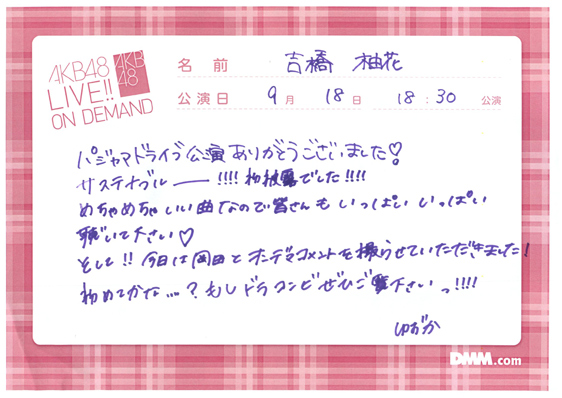 AKB48
LIVE!!
ON DEMAND
AKB
48
名前 吉橋 柚花
公演日 9月 18日 18:30 公演
パジャマドライブ公演ありがとうございました♡
サステナブルー!!!! 初披露でした!!!!
めちゃめちゃいい曲なので皆さんもいっぱいいっぱい
聴いて下さい♡
そして!! 今日は岡田とオンデマコメントを撮らせていただきました!
初めてかな...? もしドラコンビぜひご覧下さいっ!!!!
ゆずか
DMM.com